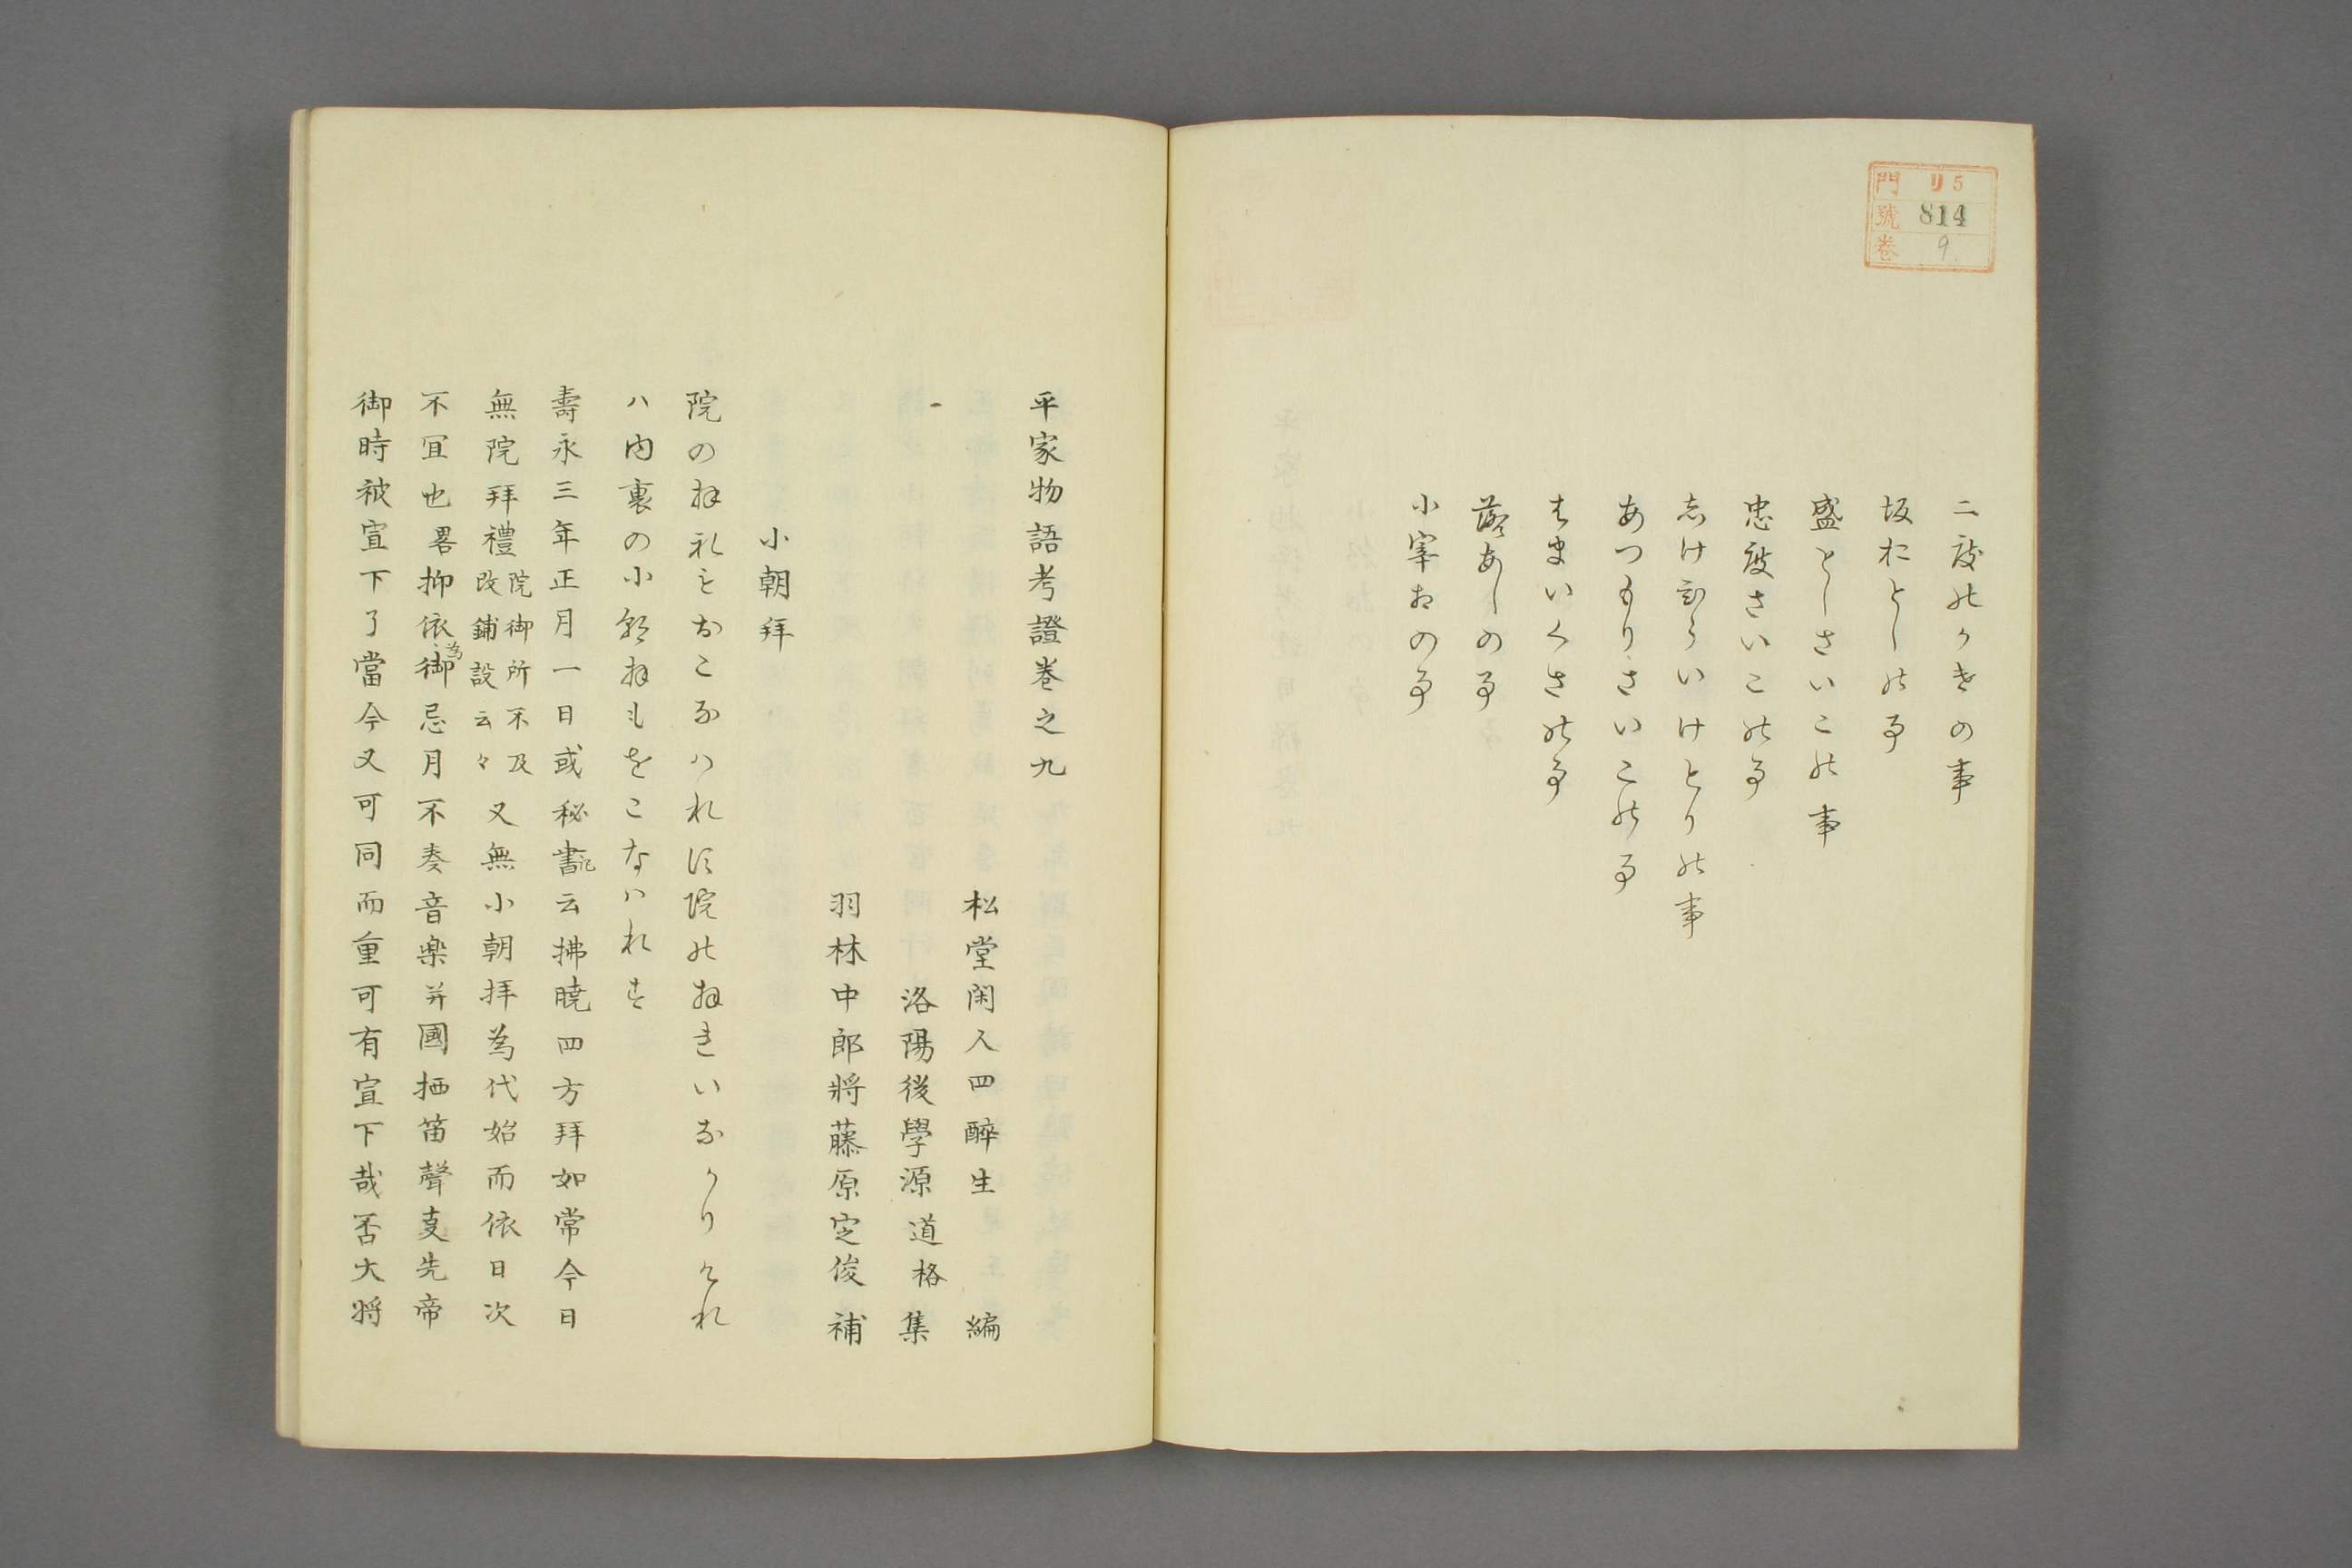 門 リ5
號 814
巻 9
二度のかけの事
坂おとしの事
盛としさいこの事
忠度さいこの事
しけひらいけとりの事
あつもりさいこの事
はまいくさの事
落あしの事
小宰相の事
平家物語考證巻之九
松堂閑人四醉生 編
洛陽後學源道格 集
羽林中郎將藤原定俊 補
小朝拜
院の拜礼もおこなハれす院の拜礼なかりけれ
ハ内裏の小朝拜もをこなハれす
壽永三年正月一日或秘書記云拂曉四方拜如常今日
無院拜禮院御所不及改鋪設云々又無小朝拝為代始而依日次
不冝也畧抑依為御忌月不奏音樂并國栖笛聲支先帝
御時被宣下了當今又可同而重可有宣下哉否大将